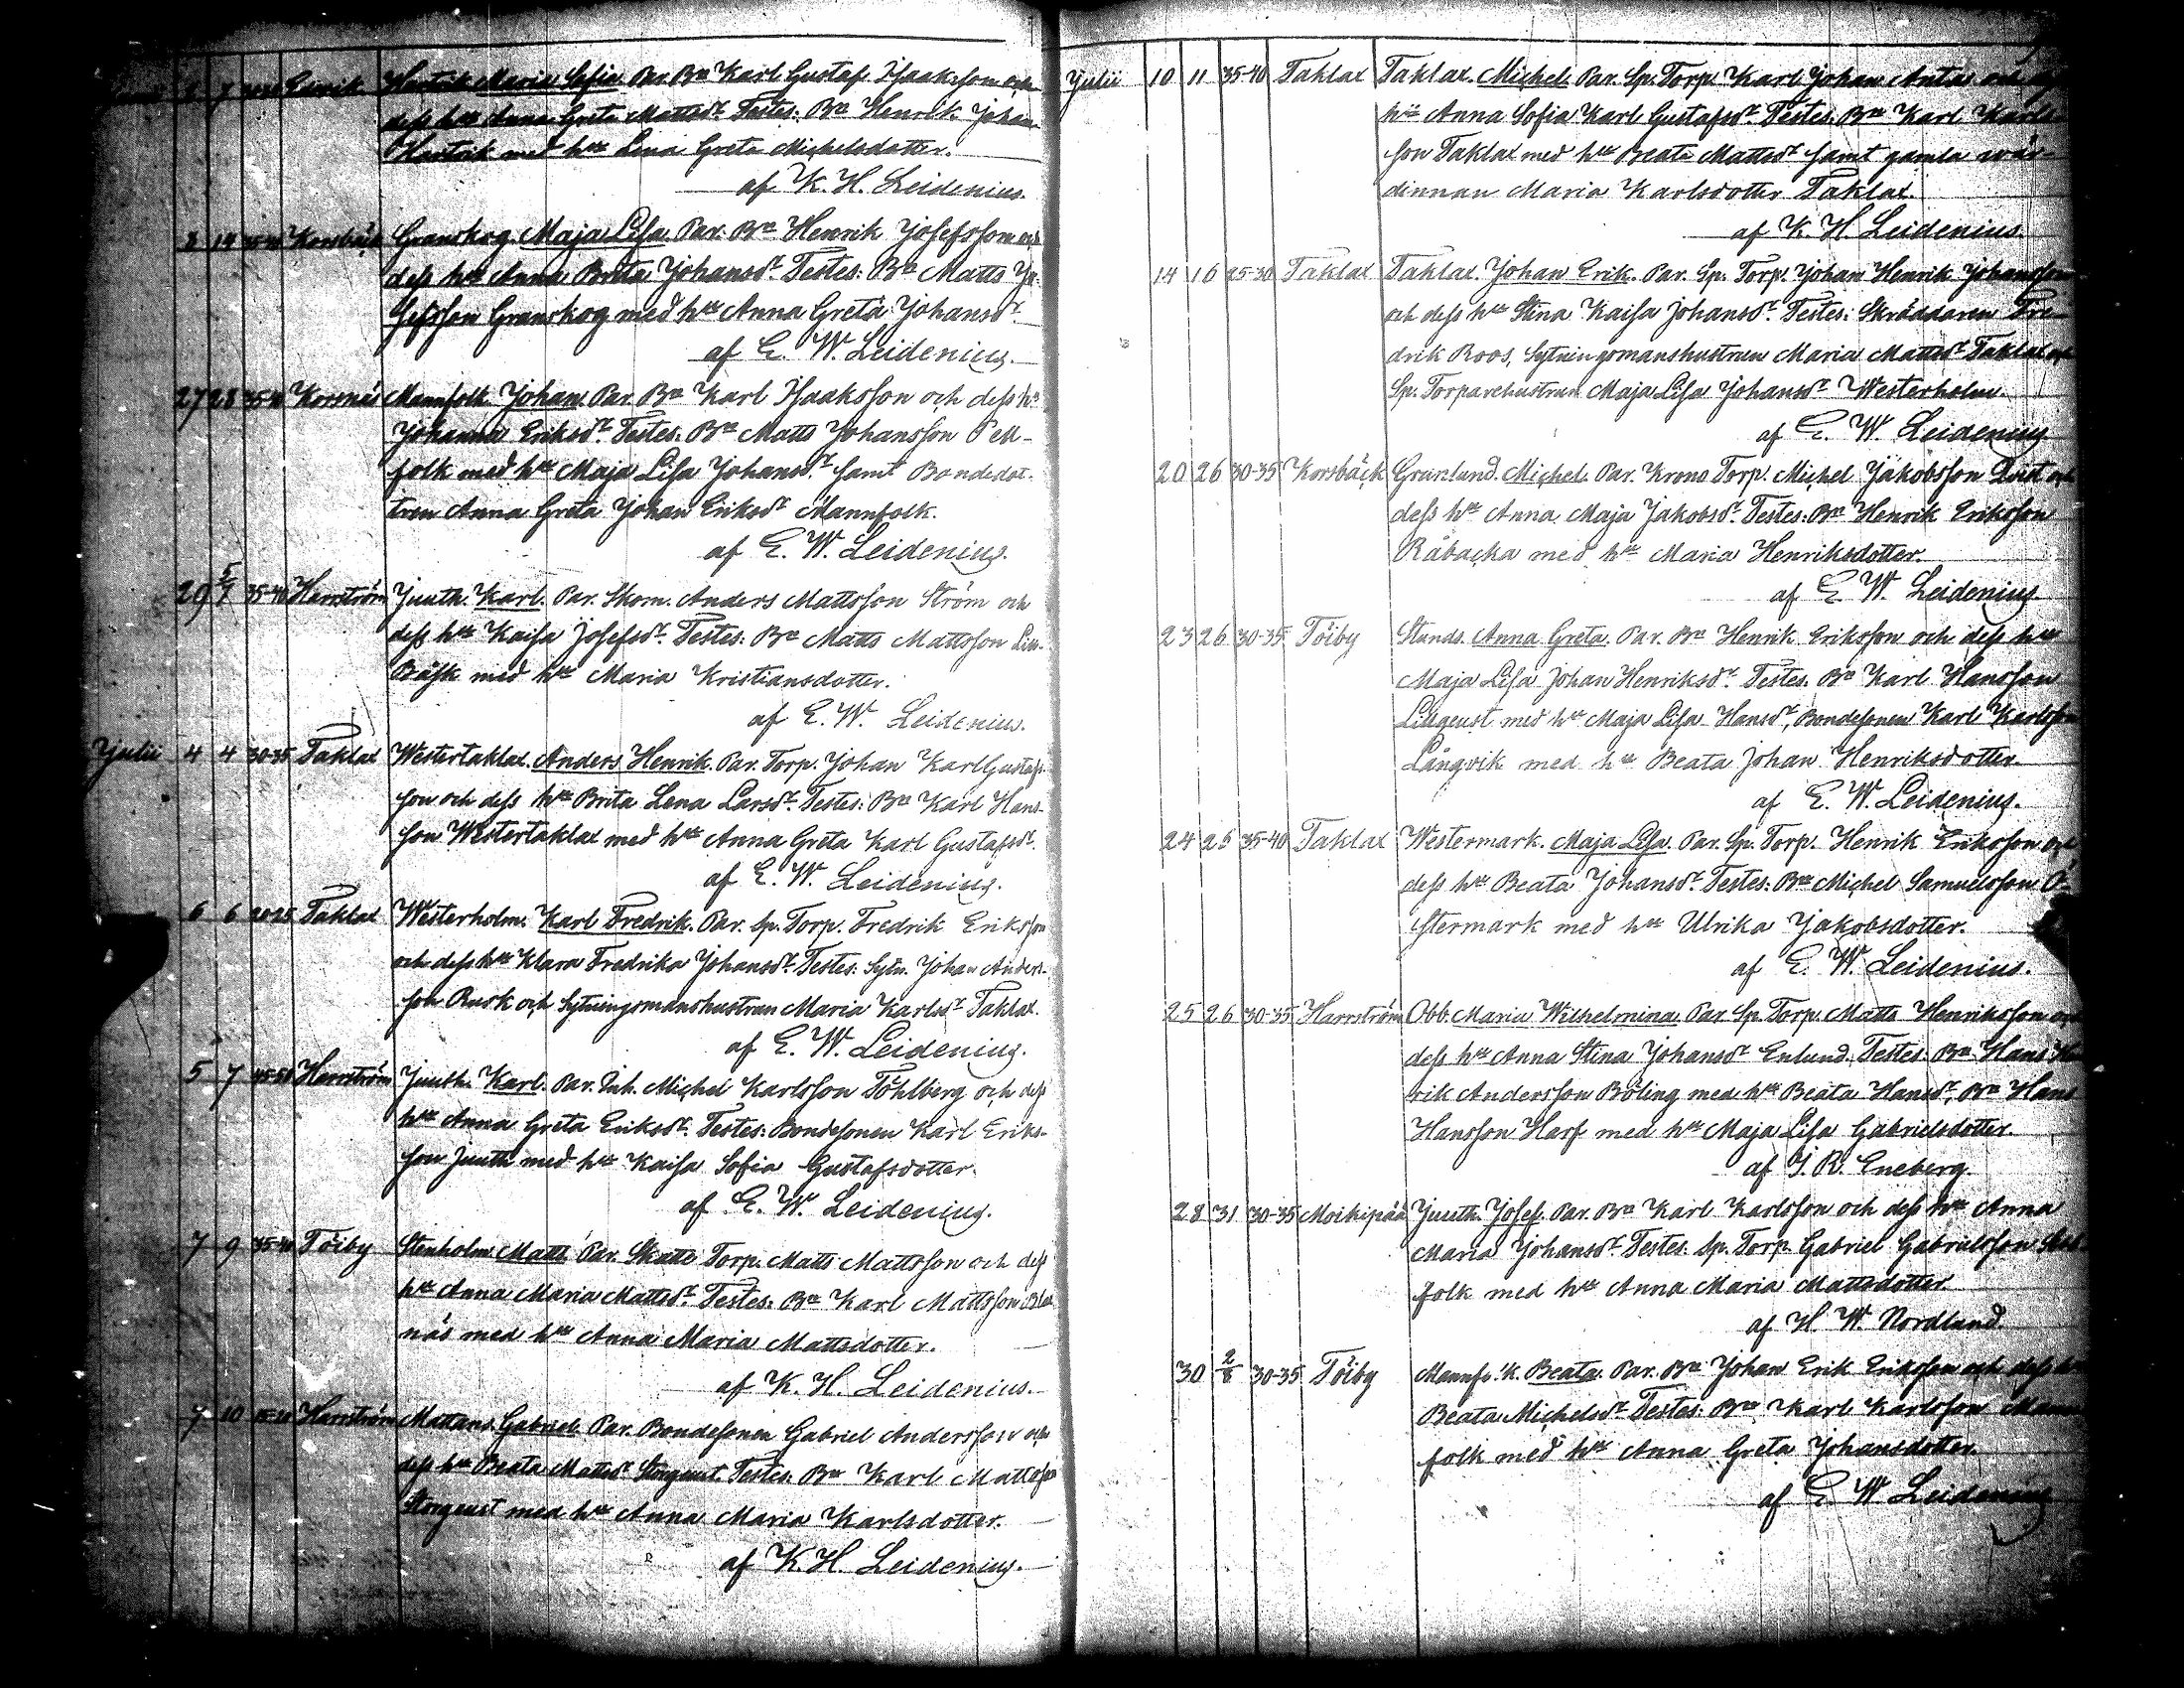 2 7 Hartvik Maria Sofia. Par. Bn Karl Gustaf Isaaksson och
dess hu Anna Greta Mattsdr. Testes: Bn Henrik Johan
Hartvik med hu Lena Greta Michelsdotter.
af K. H. Leidenius.
8 14 Korsbäck Granskog. Maja Lisa. Par. Bn Henrik Josefsson och
dess hu Anna Brita Johansdr. Testes: Bn Matts Jo-
sefsson Granskog med hu Anna Greta Johansdr
af E. W. Leidenius.
27 28 35-40 Korsnäs Mannfolk. Johan. Par. Bn Karl Isaaksson och dess hu
Johanna Eriksdr. Testes: Bn Matts Johansson Pell-
folk med hu Maja Lisa Johansdr samt Bondedot-
tren Anna Greta Johan Eriksdr Mannfolk.
af E. W. Leidenius.
29 5/7 35-40 Harrström Juuth. Karl. Par. Skom. Anders Mattsson Ström och
dess hu Kaisa Josefsdr. Testes: Bn Matts Mattsson
Båsk med hu Maria Kristiansdotter.
af E. W. Leidenius.
Julii 4 4 30-35 Taklax Westertaklax. Anders Henrik. Par. Torp. Johan Karl Gustafs-
son och dess hu Brita Lena Larsdr. Testes: Bn Karl Hans-
son Westertaklax med hu Anna Greta Karl Gustafsdr.
af E. W. Leidenius.
6 6 20-25 Taklax Westerholm. Karl Fredrik. Par. Sp. Torp. Fredrik Eriksson
och dess hu Klara Fredrika Johansdr. Testes: Sytn. Johan Anders-
son Rusk och Sytningsmanshustrun Maria Karlsdr Taklax.
af E. W. Leidenius.
5 7 45-50 Harrström Juuth. Karl. Par. Inh. Michel Karlsson Töhlberg och dess
hu Anna Greta Eriksdr. Testes: Bondesonen Karl Eriks-
son Juuth med hu Kaisa Sofia Gustafsdotter.
af E. W. Leidenius.
7 9 35-40 Töiby Stenholm Matts. Par. Skatte Torp. Matts Mattsson och dess
hu Anna Maria Mattsdr. Testes: Bn Karl Mattsson
näs med hu Anna Maria Mattsdotter.
af K. H. Leidenius.
7 10 Harrström Mattans. Gabriel. Par. Bondesonen Gabriel Andersson och
dess hu Beata Mattsdr Storgeust. Testes: Bn Karl Mattsson
Storgeust med hu Anna Maria Karlsdotter.
af K. H. Leidenius.
Julii 10 11 35-40 Taklax Taklax. Michel. Par. Sp. Torp. Karl Johan Antas och
hu Anna Sofia Karl Gustafsdr. Testes: Bn Karl Karls-
son Taklax med hu Beata Mattsdr samt gamla wär-
dinnan Maria Karlsdotter Taklax.
af K. H. Leidenius.
14 16 25-30 Taklax Taklax. Johan Erik. Par. Sp. Torp. Johan Henrik Johansson
och dess hu Stina Kaisa Johansdr. Testes: Skräddaren Fre-
drik Roos, Sytningsmanshustrun Maria Mattsdr Taklax och
Sp. Torparehustrun Maja Lisa Johansdr Westerholm.
af E. W. Leidenius
20 26 30-35 Korsbäck Granlund. Michel. Par. Krono Torp. Michel Jakobsson Dust och
dess hu Anna Maja Jakobsdr. Testes: Bn Henrik Eriksson
Råbacka med hu Maria Henriksdotter.
af E. W. Leidenius.
23 26 30-35 Töiby Stands. Anna Greta. Par. Bn Henrik Eriksson och dess hu
Maja Lisa Johan Henriksdr. Testes: Bn Karl Hansson
Lillgeust med hu Maja Lisa Hansdr, Bondesonen Karl Karlsson
Långvik med hu Beata Johan Henriksdotter.
af E. W. Leidenius.
24 26 35-40 Taklax Westermark. Maja Lisa. Par. Sp. Torp. Henrik Eriksson och
dess hu Beata Johansdr. Testes: Bn Michel Samuelsson Ö-
stermark med hu Ulrika Jakobsdotter.
af E. W. Leidenius.
25 26 30-35 Harrström Obb. Maria Wilhelmina. Par. Sp. Torp. Matts Henriksson och
dess hu Anna Stina Johansdr Enlund. Testes: Bn Hans Hen-
rik Andersson Böling med hu Beata Hansdr, Bn Hans
Hansson Harf med hu Maja Lisa Gabrielsdotter.
af J. R. Eneberg.
28 31 30-35 Moikipää Juuth. Josef. Par. Bn Karl Karlsson och dess hu Anna
Maria Johansdr. Testes: Sp. Torp. Gabriel Gabrielsson
folk med hu Anna Maria Mattsdotter.
af H. W. Nordlund.
30 2/8 30-35 Töiby Mannfolk. Beata. Par. Bn Johan Erik Eriksson och dess hu
Beata Michelsdr. Testes: Bn Karl Karlsson Mann-
folk med hu Anna Greta Johansdotter.
af E. W. Leidenius